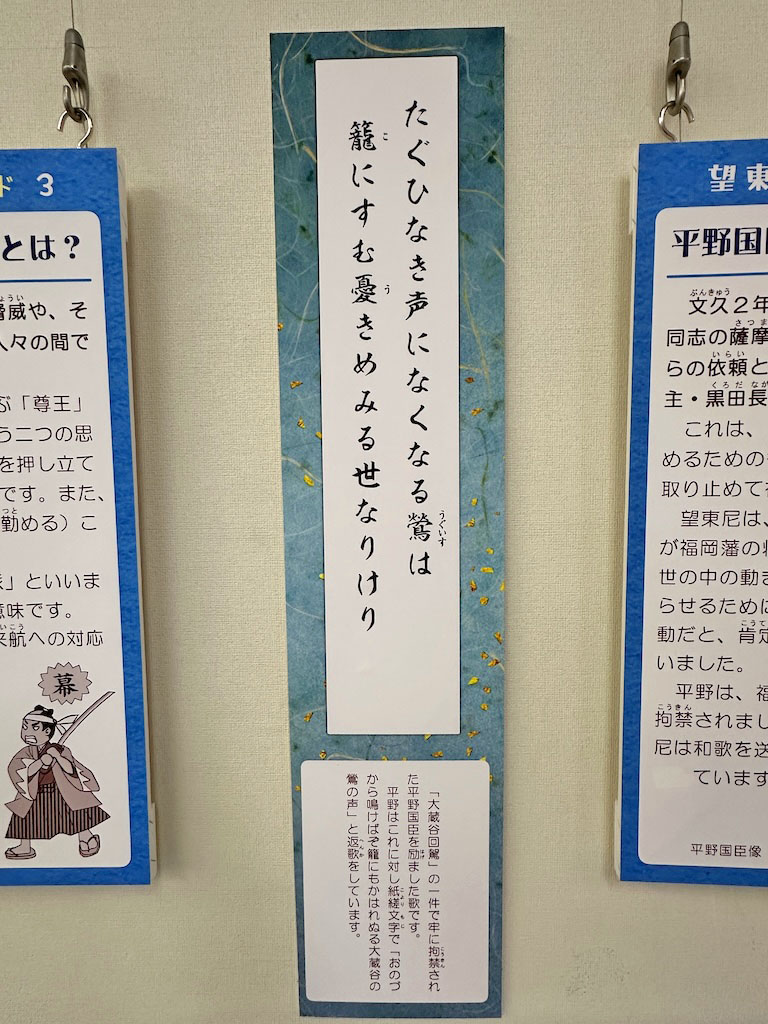 ド 3
とは？
ょうい
脅威や、そ
人々の間で
ぶ「尊王」
う二つの思
を押し立て
です。また、
つと
勤める）こ
」といいま
意味です。
いこう
来航への対応
幕
たぐひなき声になくなる鶯は
うぐいす
籠にすむ憂きめみる世なりけり
こ
う
「大蔵谷回駕」の一件で牢に拘禁され
こうきん
た平野国臣を励ました歌です。
はげ
平野はこれに対し紙縒文字で「おのづ
こよりもじ
から鳴けばぞ籠にもかはれぬる大蔵谷の
鶯の声」と返歌をしています。
へんか
望東
平野国
ぶんきゅう
文久２年
さつま
同志の薩摩
いらい
らの依頼と
くろだ なが
主・黒田長
これは、
めるための
取り止めて
望東尼は、
が福岡藩の
世の中の動
らせるために
こうて
動だと、肯定
いました。
平野は、福
こうきん
拘禁されまし
尼は和歌を送
ています
平野国臣像